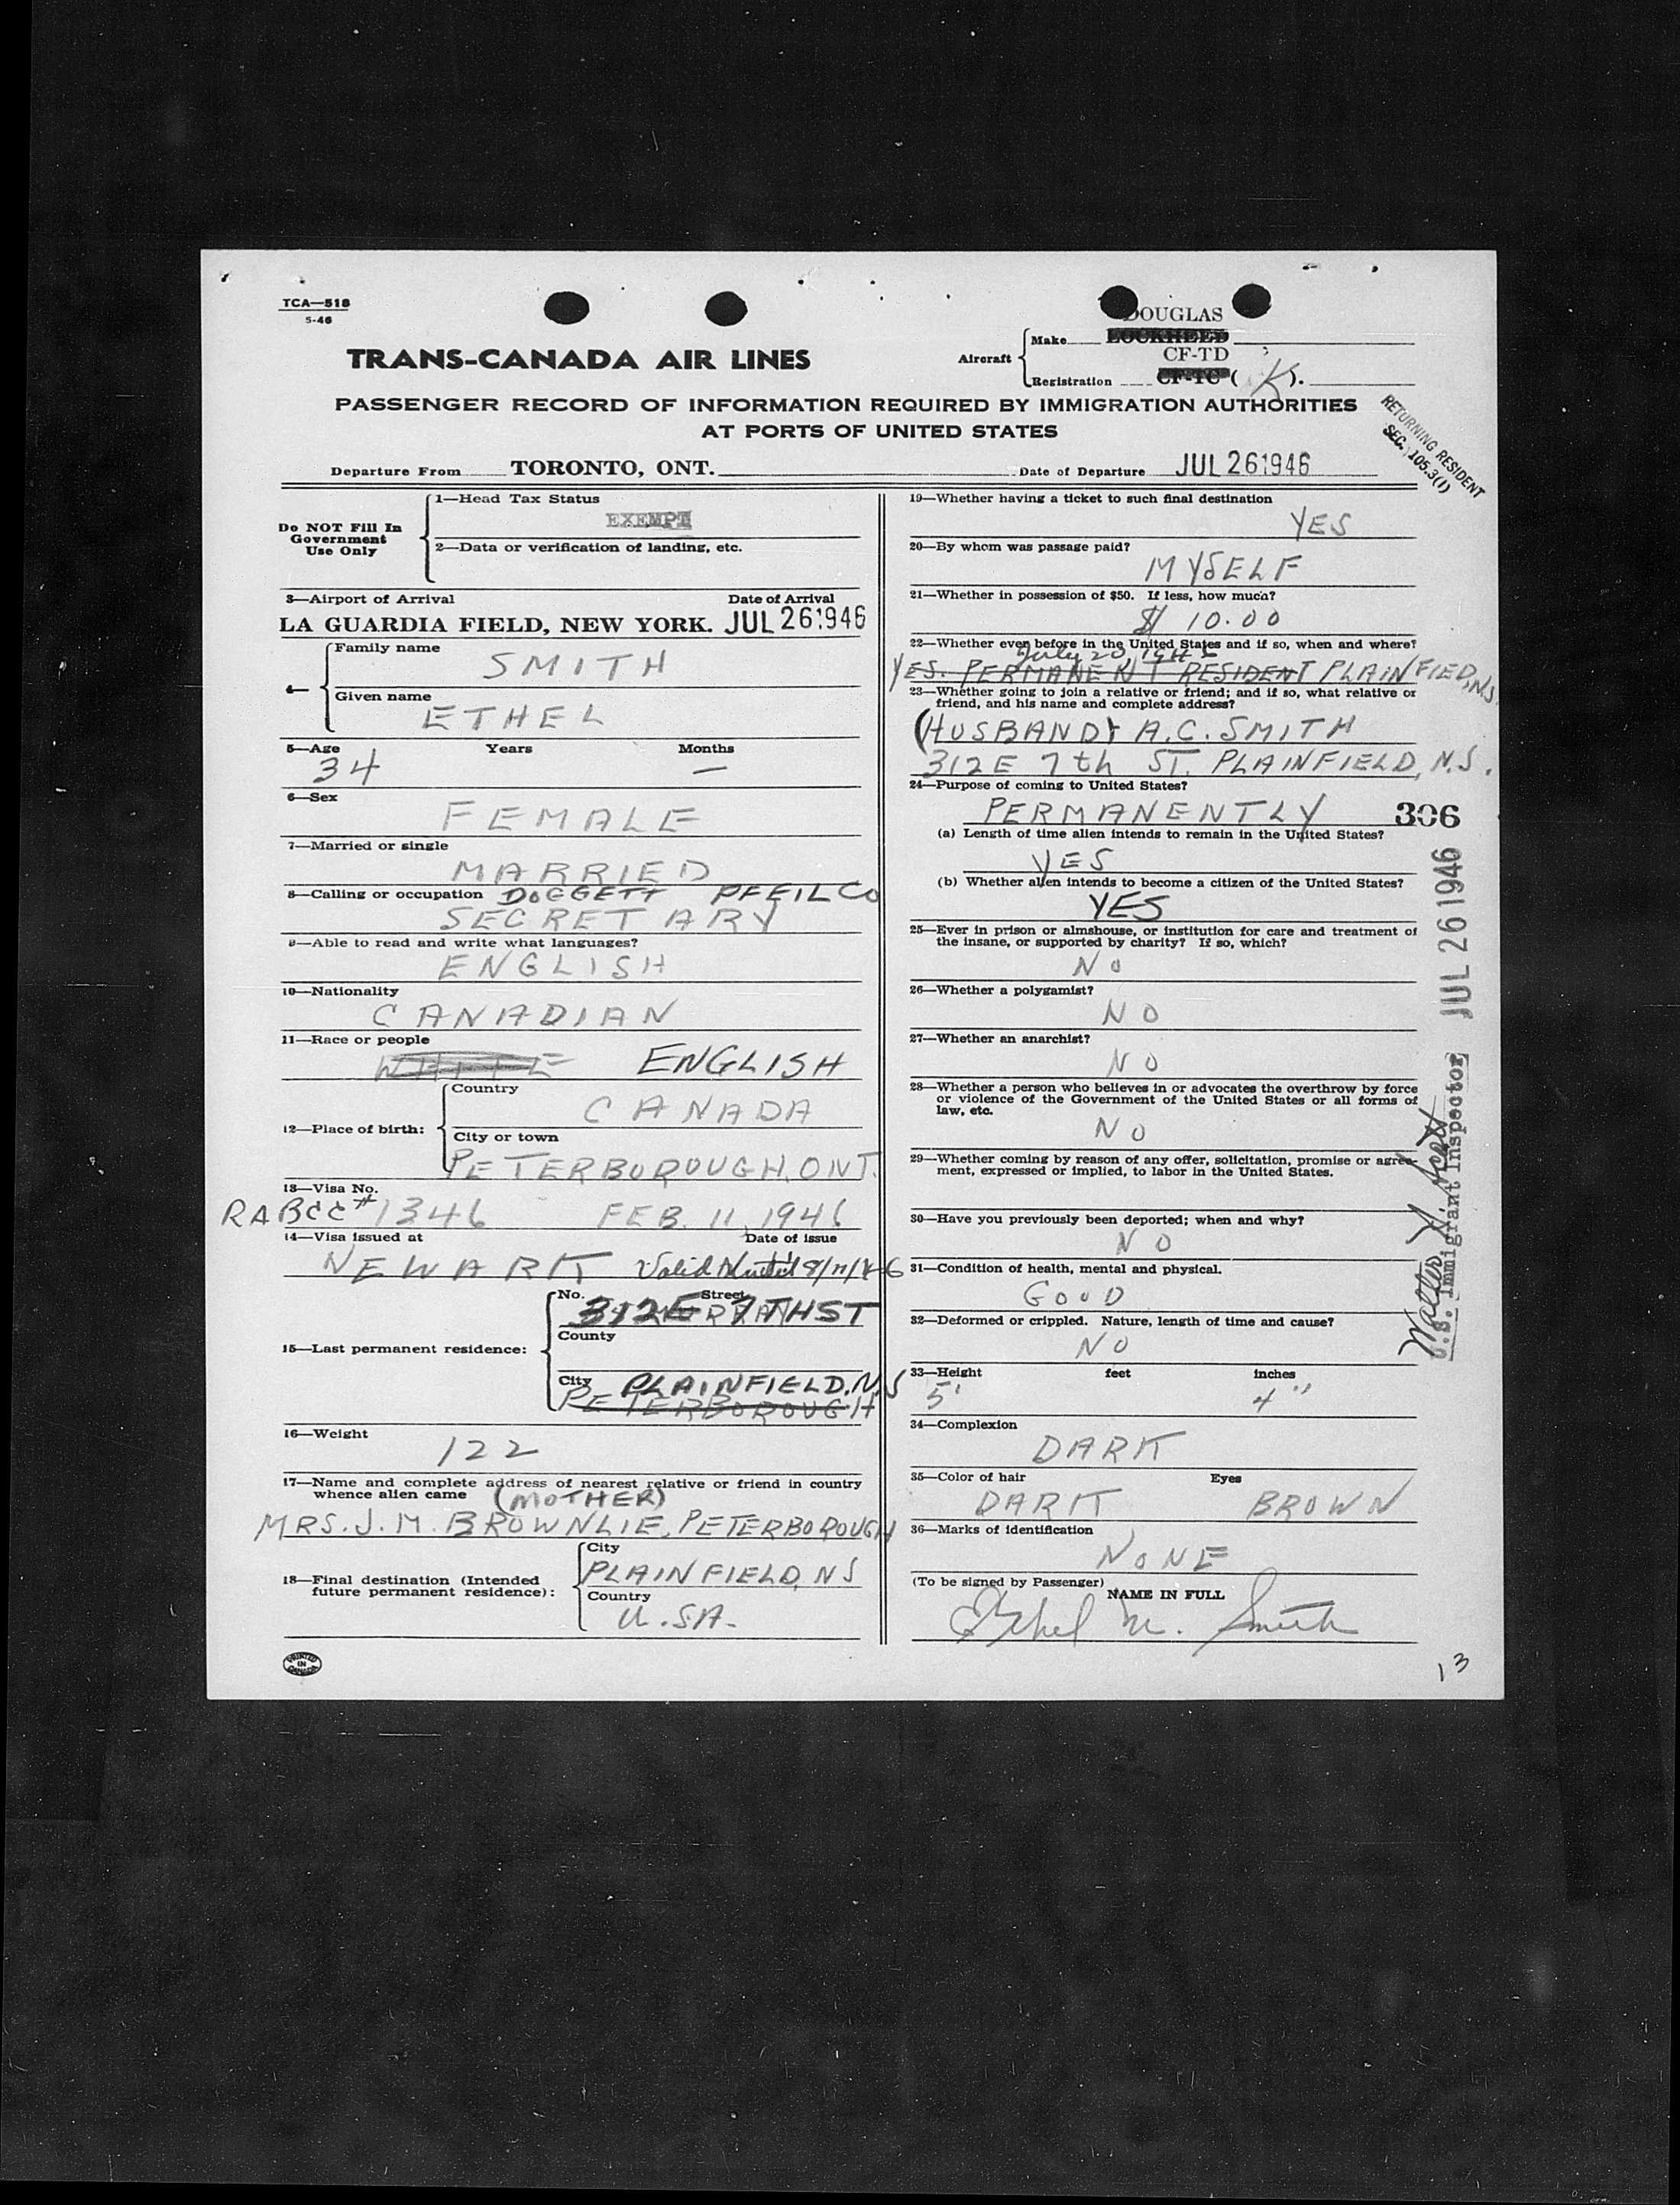 TCA—518
5-46
DOUGLAS
Aircraft
Make LOCKHEED
CF-TD
Registration CF-TC ( K ).
TRANS-CANADA AIR LINES
PASSENGER RECORD OF INFORMATION REQUIRED BY IMMIGRATION AUTHORITIES
AT PORTS OF UNITED STATES
RETURNING RESIDENT
SEC. 105.3(1)
Departure From TORONTO, ONT. Date of Departure JUL 26 1946
Do NOT Fill In
Government
Use Only
1—Head Tax Status
EXEMPT
2—Data or verification of landing, etc.
3—Airport of Arrival Date of Arrival
LA GUARDIA FIELD, NEW YORK. JUL 26 1946
4—
Family name
SMITH
Given name
ETHEL
5—Age Years Months
34 —
6—Sex
FEMALE
7—Married or single
MARRIED
8—Calling or occupation DOGGETT PFEIL CO
SECRETARY
9—Able to read and write what languages?
ENGLISH
10—Nationality
CANADIAN
11—Race or people
WHITE ENGLISH
12—Place of birth:
Country
CANADA
City or town
PETERBOROUGH, ONT.
13—Visa No.
# 1346 FEB. 11, 1946
14—Visa issued at Date of issue
NEWARK Valid until 8/11/46
15—Last permanent residence:
No. Street
312 E 7TH ST
County
City PLAINFIELD, N.J
PETERBOROUGH
16—Weight
122
17—Name and complete address of nearest relative or friend in country
whence alien came (MOTHER)
MRS. J. M. BROWNLIE, PETERBOROUGH
18—Final destination (Intended
future permanent residence):
City
PLAINFIELD, NJ
Country
U.S.A.
PRINTED
IN
CANADA
19—Whether having a ticket to such final destination
YES
20—By whom was passage paid?
MYSELF
21—Whether in possession of $50. If less, how much?
$ 10.00
22—Whether ever before in the United States and if so, when and where?
July 20
YES. PERMANENT RESIDENT PLAINFIED, N.J.
23—Whether going to join a relative or friend; and if so, what relative or
friend, and his name and complete address?
(HUSBAND) A.C. SMITH
312 E 7th ST. PLAINFIELD, N.J.
24—Purpose of coming to United States?
PERMANENTLY 306
(a) Length of time alien intends to remain in the United States?
YES
(b) Whether alien intends to become a citizen of the United States?
YES
25—Ever in prison or almshouse, or institution for care and treatment of
the insane, or supported by charity? If so, which?
NO
26—Whether a polygamist?
NO
27—Whether an anarchist?
NO
28—Whether a person who believes in or advocates the overthrow by force
or violence of the Government of the United States or all forms of
law, etc.
NO
29—Whether coming by reason of any offer, solicitation, promise or agree-
ment, expressed or implied, to labor in the United States.
30—Have you previously been deported; when and why?
NO
31—Condition of health, mental and physical.
GOOD
32—Deformed or crippled. Nature, length of time and cause?
NO
33—Height feet inches
5' 4"
34—Complexion
DARK
35—Color of hair Eyes
DARK BROWN
36—Marks of identification
NONE
(To be signed by Passenger)
NAME IN FULL
Ethel M. Smith
JUL 26 1946
U.S. Immigrant Inspector
13